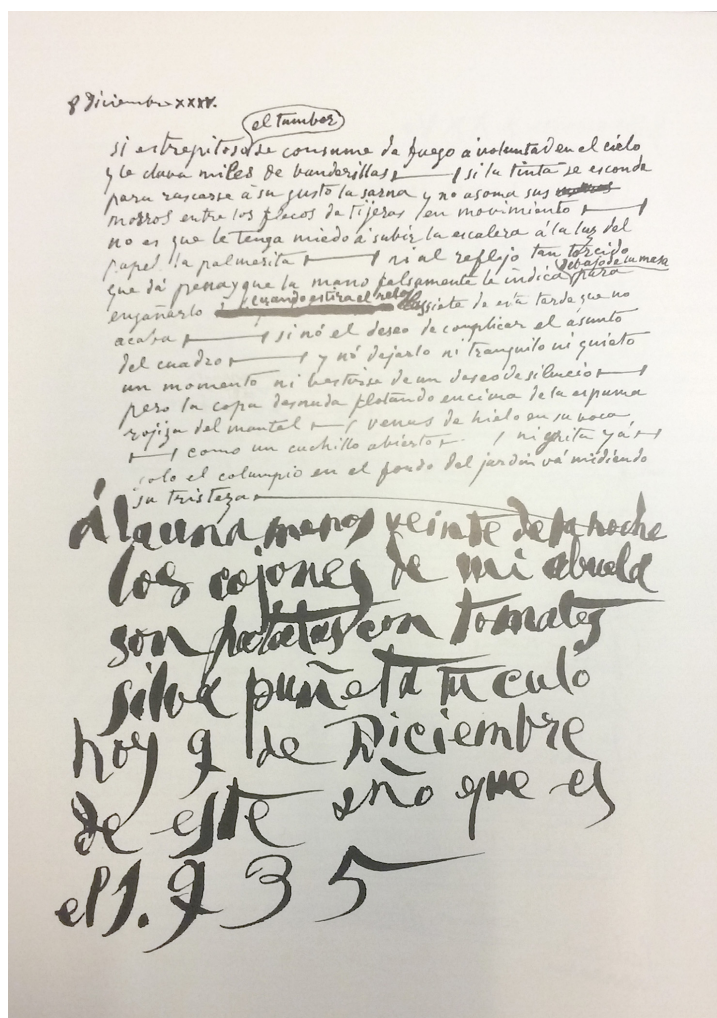 8 diciembre XXXV.
el tambor
si estrepitoso se consume da fuego a voluntad en el cielo
y le clava miles de banderillas si la tinta se esconde
para rascarse á su gusto la sarna y no asoma sus
morros entre los flecos de tijeras en movimiento
no es que le tenga miedo á subir la escalera á la luz del
papel la palmerita ni al reflejo tan torcido
debajo de la mesa
que dá pena y que la mano falsamente le indica para
engañarlo cuando estira el reloj las siete de esta tarde que no
acaba si nó el deseo de complicar el asunto
del cuadro y nó dejarlo ni tranquilo ni quieto
un momento ni vestirse de un deseo de silencio
pero la copa desnuda flotando encima de la espuma
rojiza del mantel venas de hielo en su voca
como un cuchillo abierto ni grita yá
solo el columpio en el fondo del jardin vá midiendo
su tristeza
á la una menos veinte de la noche
los cojones de mi abuela
son patatas con tomates
silva puñeta tu culo
hoy 9 de Diciembre
de este año que es
el 1.935